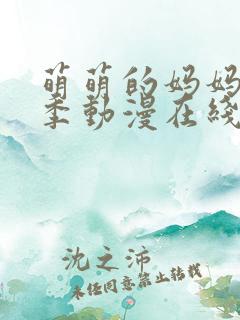 萌萌的妈妈
季動漫在綫
沈之沛
未经同意禁止转载